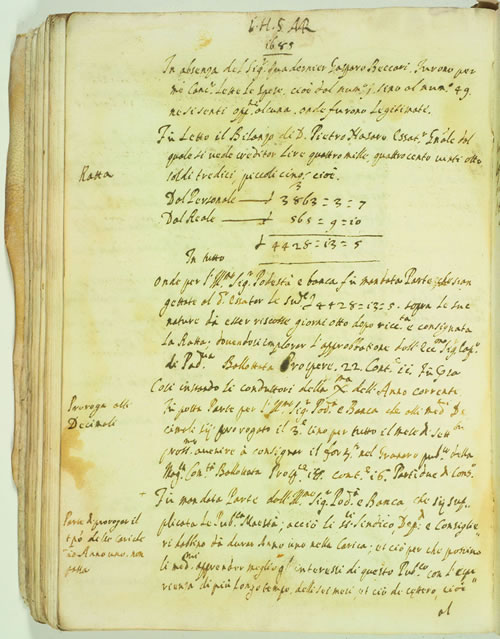 I.H.S. AR
1685
In absenza del Sig.r Quadernier Gasparo Beccari, furono per
me Canc.r Lette le spese, cioè dal num.o i. sino al num.o 49.
ne si sentì op.ne alcuna, onde furono Legitimate.
Fù Letto il Bilanzo di D. Pietro Nasaro Essat.r
quale si vede creditor Lire quattro mille, quattro cento vinti otto
soldi tredici, piccoli cinq; cioè
Ratta
Dal Personale 3863 = 3 = 7
Dal Reale 565 = 9 = 10
In tutto 4428 = 13 = 5
onde per l'Ill.mo Sig.r Podestà e banca fù mandata Parte, che sian
gettate al Essator le sud.e 4428 = 13 = 5. sopra le sue
nature da esser riscosse giorni otto dopo e consignata
La Ratta, dovendosi implorar l'approbatione dall'Ecc.mo Sig.r Cap.o
di Pad.va Ballottata Prospere. 22. Cont.e ii. fù
Così instando li conduttori della dell'Anno corrente
Proroga alli
Decimoli
Fù posta Parte per l'Ill.mo Sig.r Pod.tà e Banca che alli med.i De
cimoli sij prorogato il sino per tutto il Mese di
pross. venire à consignar il nel Granaro pub.o della
Mag.ca Com.tà Ballottata Prosp.e 18. cont.e 16.
Parte di prorogar il
tpō delle Cariche
Anno uno. non
Fù mandata Parte dall'Ill.mo Sig.r Pod.tà e Banca che sij sup
plicata la Pub.ca Maestà, acciò li SS.i Sindico, Dep.ti e Consiglie
ri habbino da durar Anno uno nella Carica; et ciò per che possino
li med.mi apprender meglio gl'interessi di questo Pub.co con l'espe
rienza di più longo tempo, delli sei mesi, et ciò de cettero, cioè
al